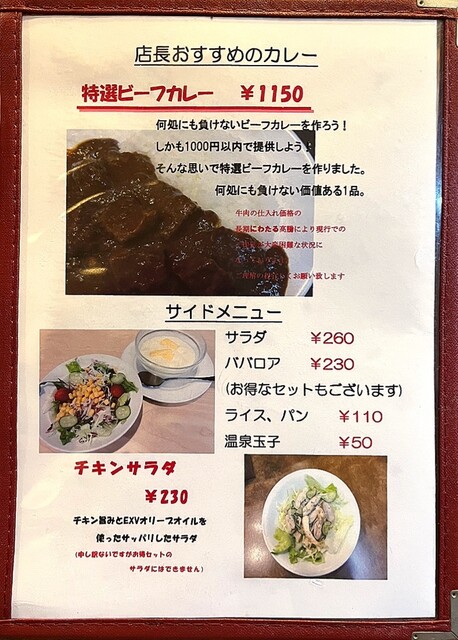 店長おすすめのカレー
特選ビーフカレー ￥1150
何処にも負けないビーフカレーを作ろう！
しかも1000円以内で提供しよう！
そんな思いで特選ビーフカレーを作りました。
何処にも負けない価値ある1品。
牛肉の仕入れ価格の
長期にわたる高騰により現行での
大変困難な状況に
くお願い致します
サイドメニュー
サラダ ￥260
ババロア ￥230
(お得なセットもございます)
ライス、パン ￥110
温泉玉子 ￥50
チキンサラダ
￥230
チキン旨みとEXVオリーブオイルを
使ったサッパリしたサラダ
(申し訳ないですがお得セットの
サラダにはできません)